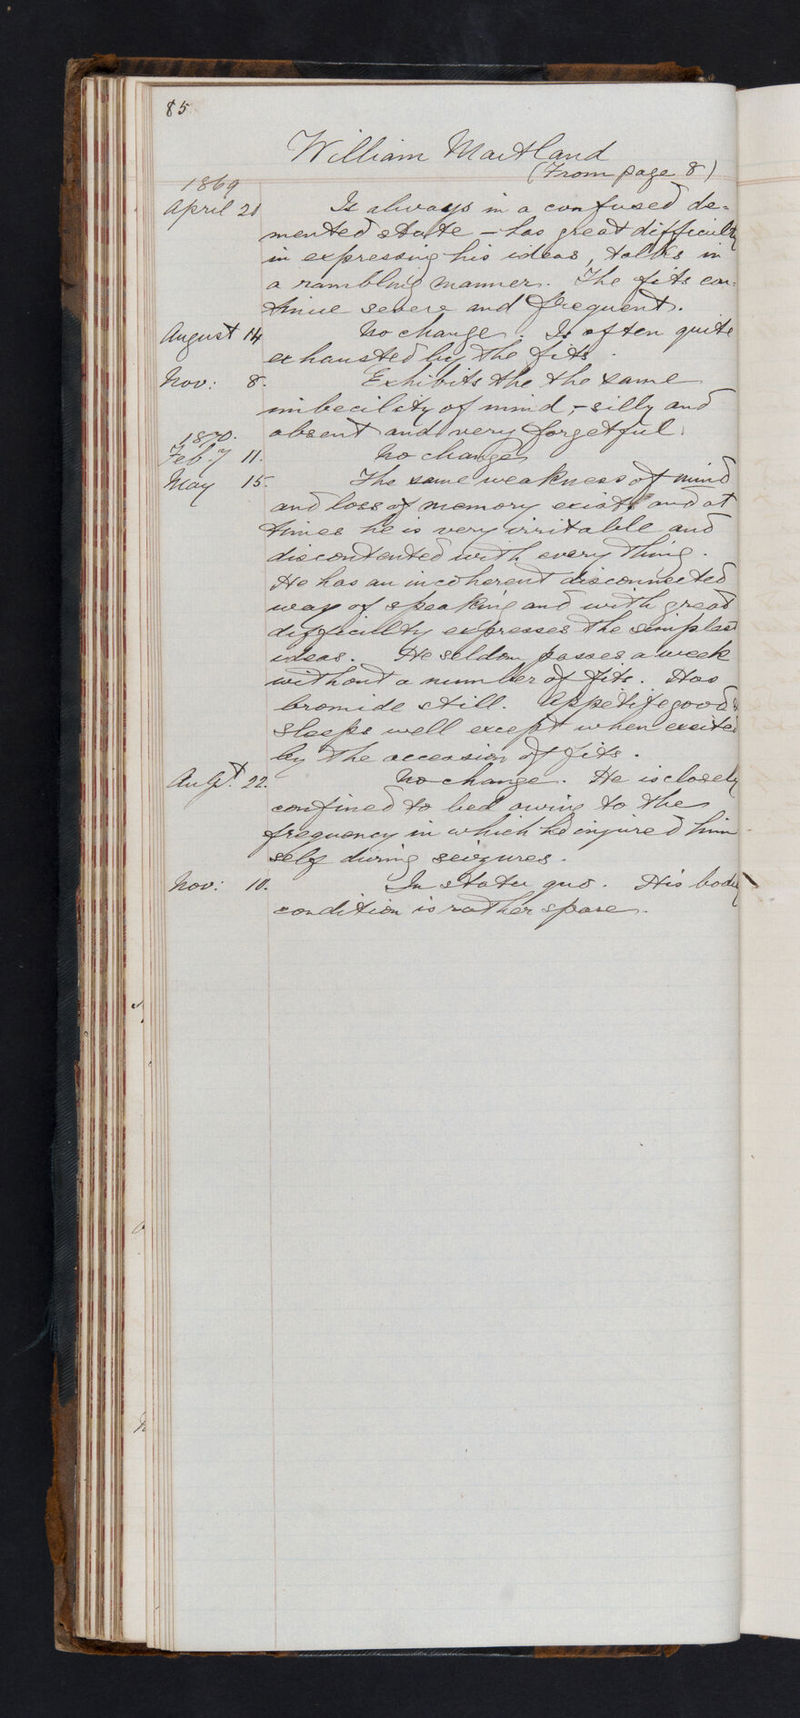 85
William Maitland
(From page 8)
1869
April 21 Is always in a confused de=
mented state - has great difficulty
in expressing his ideas, talks in
a rambling manner. The fits con-
tinue severe and frequent.
August 14 No change. Is often quite
exhausted by the fits.
Nov: 8. Exhibits the the same
imbecility of mind, - silly and
absent and very forgetful.
1870.
Feby 11. No change
May 15. The same weakness of mind
and loss of memory exists and at
times he is very irritable and
discontented with every thing.
He has an incoherent disconnected
way of speaking and with great
difficulty expresses the simplest
ideas. He seldom passes a week
without a number of fits. Has
bromide still. Appetite good &
sleeps well except when excited
by the accession of fits.
Augt. 22. No change. He is closely
confined to bed owing to the
frequency in which he injured him
self during seizures.
Nov: 10. In statu quo. His body
condition is rather spare.